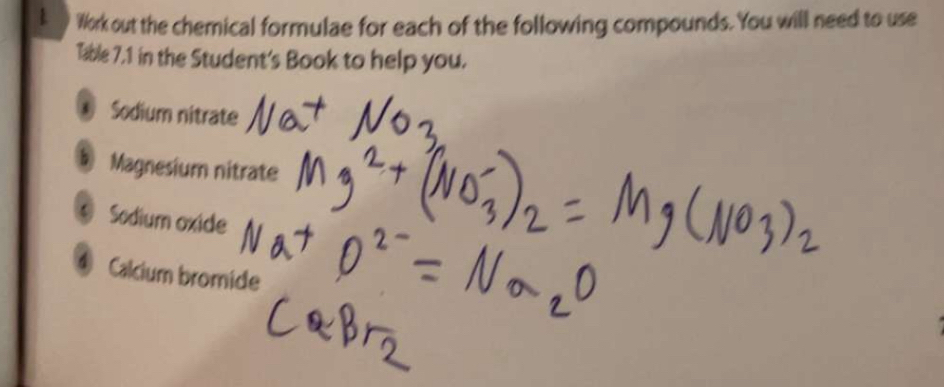 1 Work out the chemical formulae for each of the following compounds. You will need to use
Table 7.1 in the Student's Book to help you.
a Sodium nitrate Na⁺ NO₃
b Magnesium nitrate Mg²⁺ (NO₃⁻)₂ = Mg(NO₃)₂
c Sodium oxide Na⁺ O²⁻ = Na₂O
d Calcium bromide
CaBr₂